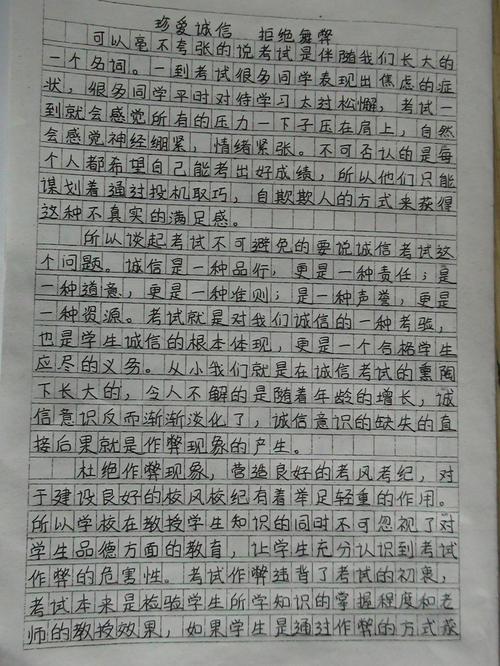 珍爱诚信 拒绝舞弊
可以毫不夸张的说考试是伴随我们长大的
一个名词。一到考试很多同学表现出焦虑的症
状，很多同学平时对待学习太过松懈，考试一
到就会感觉所有的压力一下子压在肩上，自然
会感觉神经绷紧，情绪紧张。不可否认的是每
个人都希望自己能考出好成绩，所以他们只能
谋划着通过投机取巧，自欺欺人的方式来获得
这种不真实的满足感。
所以谈起考试不可避免的要说诚信考试这
个问题。诚信是一种品行，更是一种责任；是
一种道意，更是一种准则；是一种声誉，更是
一种资源。考试就是对我们诚信的一种考验，
也是学生诚信的根本体现，更是一个合格学生
应尽的义务。从小我们就是在诚信考试的熏陶
下长大的，令人不解的是随着年龄的增长，诚
信意识反而渐渐淡化了，诚信意识的缺失的直
接后果就是作弊现象的产生。
杜绝作弊现象，营造良好的考风考纪，对
于建设良好的校风校纪有着举足轻重的作用。
所以学校在教授学生知识的同时不可忽视了对
学生品德方面的教育，让学生充分认识到考试
作弊的危害性。考试作弊违背了考试的初衷，
考试本来是检验学生所学知识的掌握程度和老
师的教授效果，如果学生是通过作弊的方式获